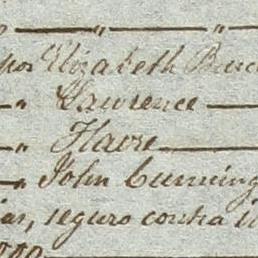 por Elizabeth
" Lawrence
" Havre
" John Cunning
ias, seguro contra i
000